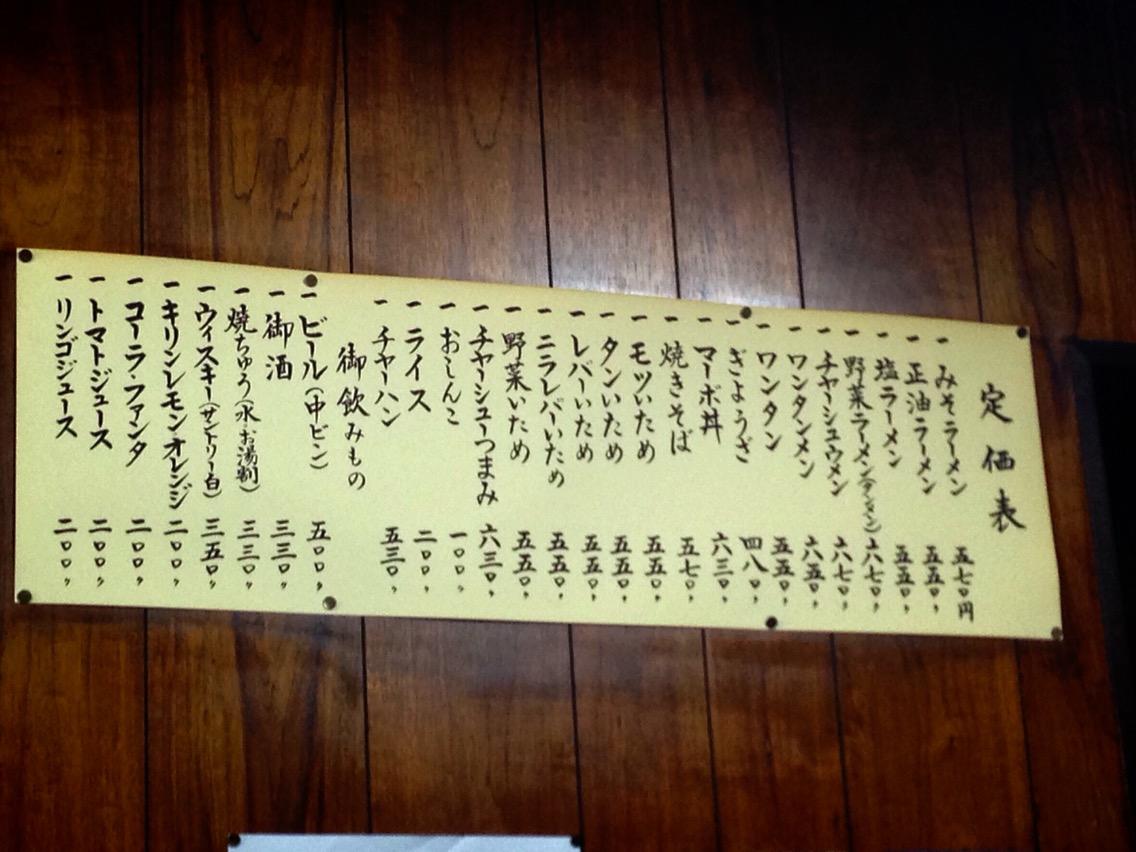 定価表
一 みそラーメン 五七〇円
一 正油ラーメン 五五〇〃
一 塩ラーメン 五五〇〃
一 野菜ラーメン(タンメン) 六七〇〃
一 チャーシュウメン 六七〇〃
一 ワンタンメン 六五〇〃
一 ワンタン 五五〇〃
一 ぎょうざ 四八〇〃
一 マーボ丼 六三〇〃
一 焼きそば 五七〇〃
一 モツいため 五五〇〃
一 タンいため 五五〇〃
一 レバーいため 五五〇〃
一 ニラレバーいため 五五〇〃
一 野菜いため 五五〇〃
一 チャーシューつまみ 六三〇〃
一 おしんこ 一〇〇〃
一 ライス 二〇〇〃
一 チャーハン 五三〇〃
御飲みもの
一 ビール(中ビン) 五〇〇〃
一 御酒 三三〇〃
一 焼ちゅう(水・お湯割) 三三〇〃
一 ウィスキー(サントリー白) 三五〇〃
一 キリンレモン・オレンジ 二〇〇〃
一 コーラ・ファンタ 二〇〇〃
一 トマトジュース 二〇〇〃
一 リンゴジュース 二〇〇〃